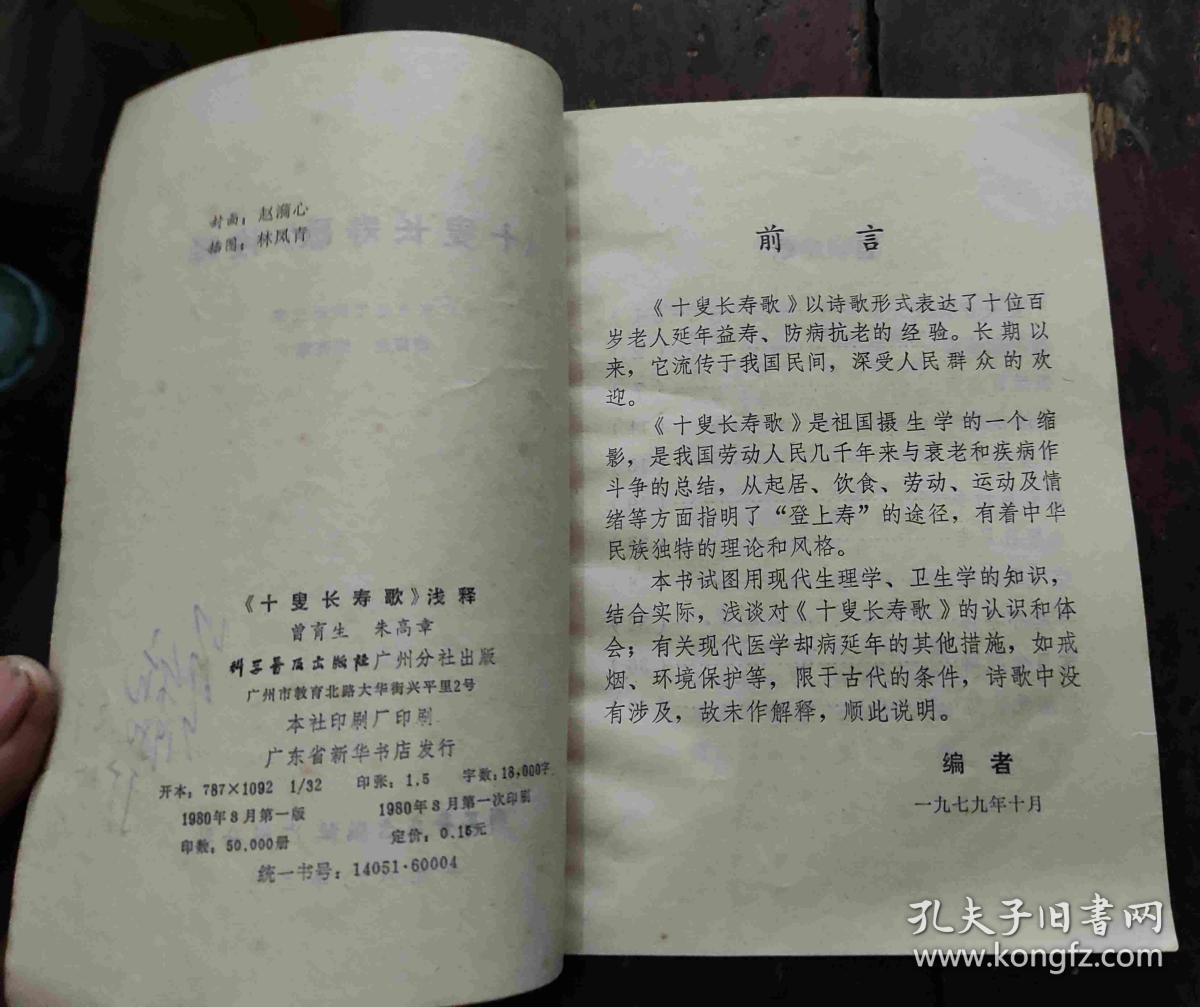 封面：赵滴心
插图：林凤青
《十叟长寿歌》浅释
曾育生 朱高章
科学普及出版社广州分社出版
广州市教育北路大华街兴平里2号
本社印刷厂印刷
广东省新华书店发行
开本：787×1092 1/32 印张：1.5 字数：18,000字
1980年8月第一版 1980年8月第一次印刷
印数：50,000册 定价：0.15元
统一书号：14051·60004
前言
《十叟长寿歌》以诗歌形式表达了十位百
岁老人延年益寿、防病抗老的经验。长期以
来，它流传于我国民间，深受人民群众的欢
迎。
《十叟长寿歌》是祖国摄生学的一个缩
影，是我国劳动人民几千年来与衰老和疾病作
斗争的总结，从起居、饮食、劳动、运动及情
绪等方面指明了“登上寿”的途径，有着中华
民族独特的理论和风格。
本书试图用现代生理学、卫生学的知识，
结合实际，浅谈对《十叟长寿歌》的认识和体
会；有关现代医学却病延年的其他措施，如戒
烟、环境保护等，限于古代的条件，诗歌中没
有涉及，故未作解释，顺此说明。
编者
一九七九年十月
孔夫子旧书网
www.kongfz.com